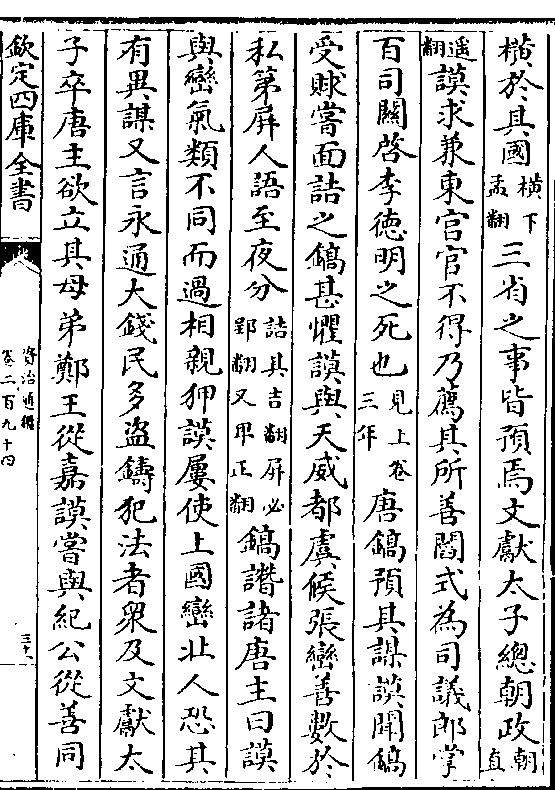 橫於其國橫下孟翻三省之事皆預焉文獻太子總朝政朝直
遥翻謨求兼東宫官不得乃薦其所善閻式為司議郎掌
百司關啓李德明之死也見上卷三年唐鎬預其謀謨聞鎬
受賕嘗面詰之鎬甚懼謨與天威都虞候張巒善數於
私第屏人語至夜分詰其吉翻屏必郢翻又卑正翻鎬譖諸唐主曰謨
與巒氣類不同而過相親狎謨屢使上國巒北人恐其
有異謀又言永通大錢民多盜鑄犯法者衆及文獻太
子卒唐主欲立其母弟鄭王從嘉謨嘗與紀公從善同
欽定四庫全書
資治通鑑
卷二百九十四
三十八